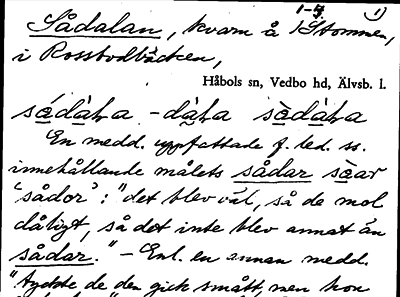 1-4 1)
Sådalan, kvarn å Stommen,
i Rossbodbäcken,
Håbols sn, Vedbo hd, Älvsb. l.
sádàLa -dàLa sòdàLa
En medd. uppfattade f. led. ss.
innehållande målets sådar sòar
'sådor': "det blev väl, så de mol
dåligt, så det inte blev annat än
sådar." – Enl. en annan medd.
"tyckte de den gick smått, men hon